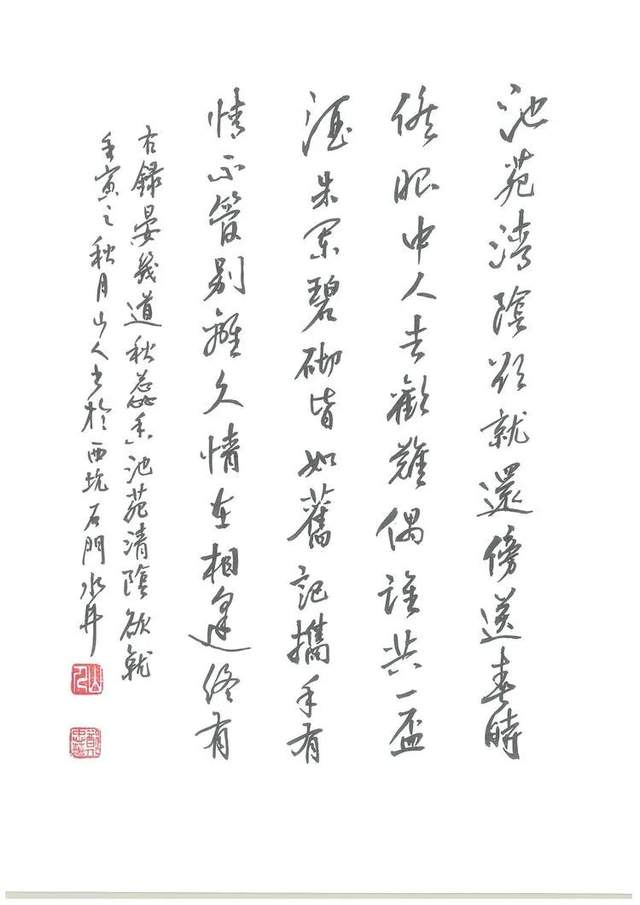 池苑清陰欲就還傍送春時
候眼中人去歡難偶誰共一盃
酒朱闌碧砌皆如舊記攜手有
情不管別離久情在相逢終有
右錄晏幾道秋蕊香池苑清陰欲就
壬寅之秋月山人書於西坑石門水井
山人